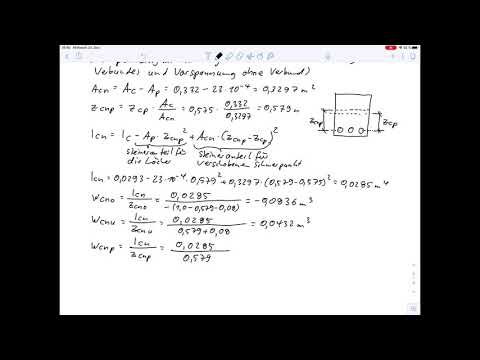 Verbundes und Vorspannung ohne Verbund)
Acn = Ac - Ap = 0,332 - 23·10⁻⁴ = 0,3297 m²
zcnp = zcp · Ac/Acn = 0,575 · 0,332/0,3297 = 0,579 m
zcnp zcp
Icn = Ic - Ap · zcnp² + Acn · (zcnp - zcp)²
steineranteil für die Löcher
steineranteil für verschobenen Schwerpunkt
Icn = 0,0293 - 23·10⁻⁴ · 0,579² + 0,3297 · (0,579 - 0,575)² = 0,0285 m⁴
Wcno = Icn/zcno = 0,0285/-(1,0-0,579-0,08) = -0,0836 m³
Wcnu = Icn/zcnu = 0,0285/0,579+0,08 = 0,0432 m³
Wcnp = Icn/zcnp = 0,0285/0,579